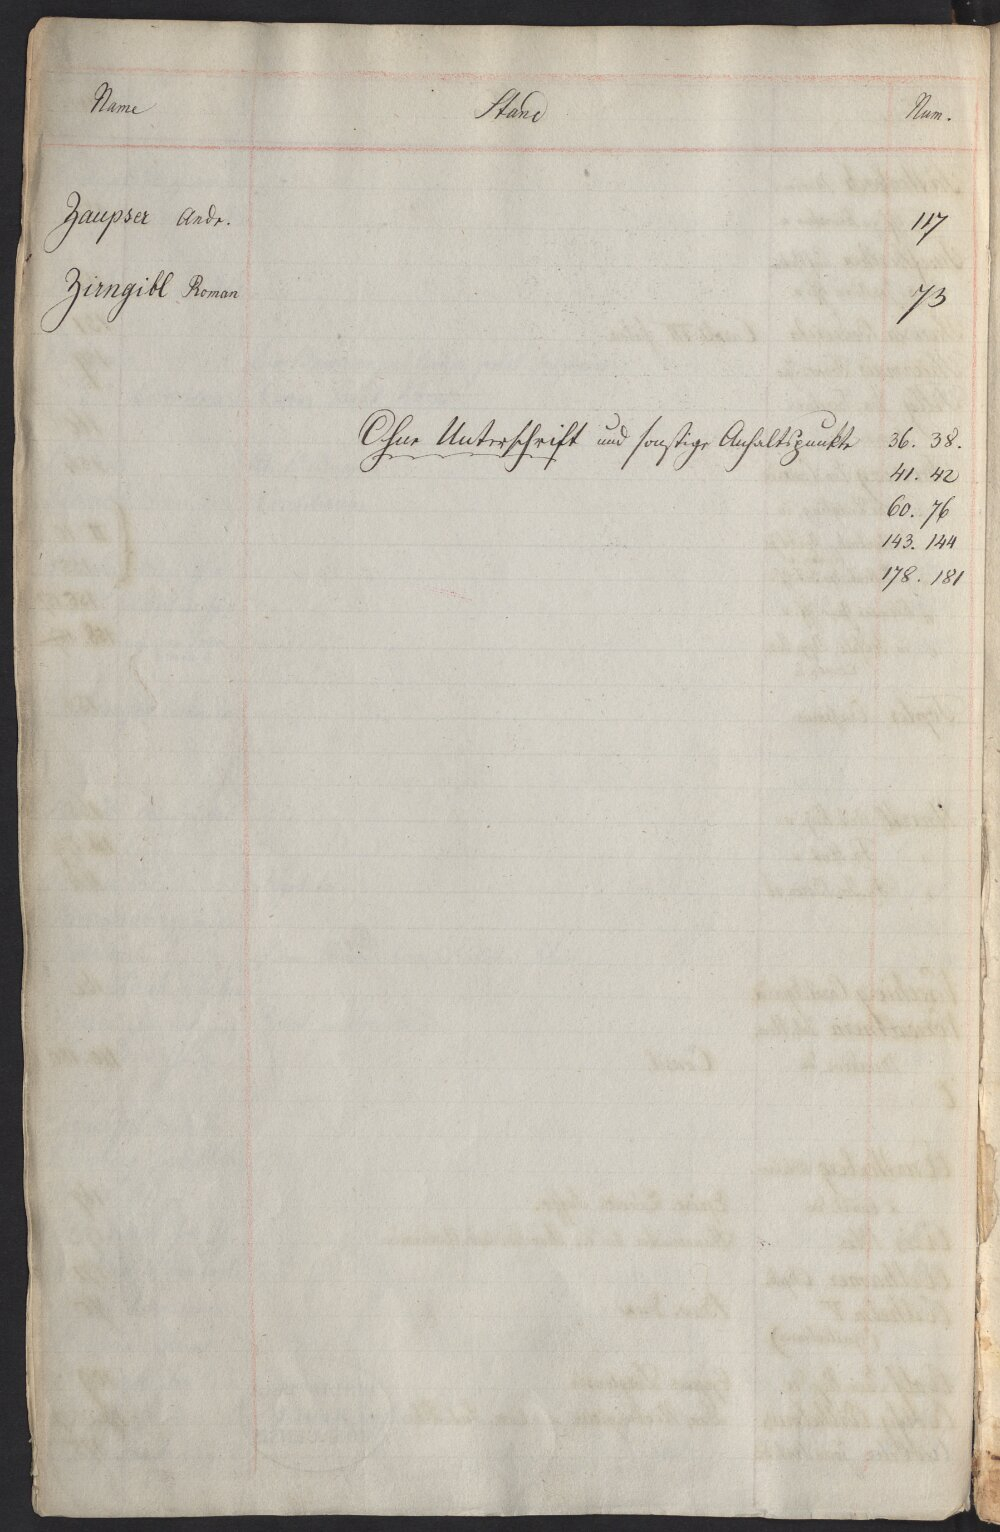 Name Stand Num.
Zaupser Andr. 117
Zirngibl Roman 73
Ohne Unterschrift und sonstige Anhaltspunkte 36. 38.
41. 42
60. 76
143. 144
178. 181